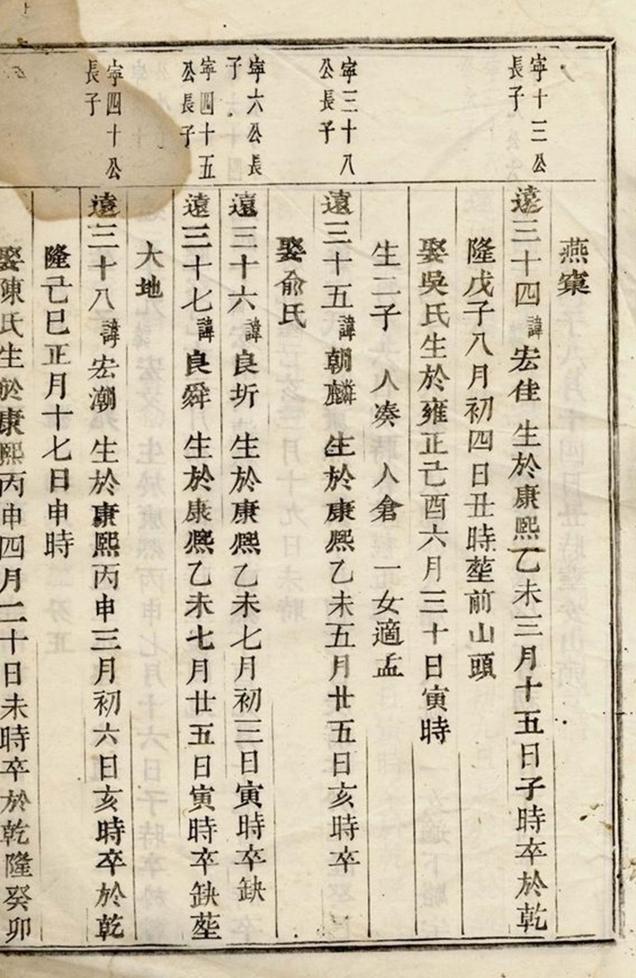 燕窠
寧十三公
長子
遠三十四諱宏佳生於康熙乙未三月十五日子時卒於乾
隆戊子八月初四日丑時塟前山頭
娶吳氏生於雍正己酉六月三十日寅時
生二子 人凑 人倉 一女適孟
寧三十八
公長子
遠三十五諱朝麟生於康熙乙未五月廿五日亥時卒
娶俞氏
寧六公長
子
遠三十六諱良圻生於康熙乙未七月初三日寅時卒缺
寧四十五
公長子
遠三十七諱良舜生於康熙乙未七月廿五日寅時卒缺塟
大地
寧四十公
長子
遠三十八諱宏潮生於康熙丙申三月初六日亥時卒於乾
隆己巳正月十七日申時
娶陳氏生於康熙丙申四月二十日未時卒於乾隆癸卯